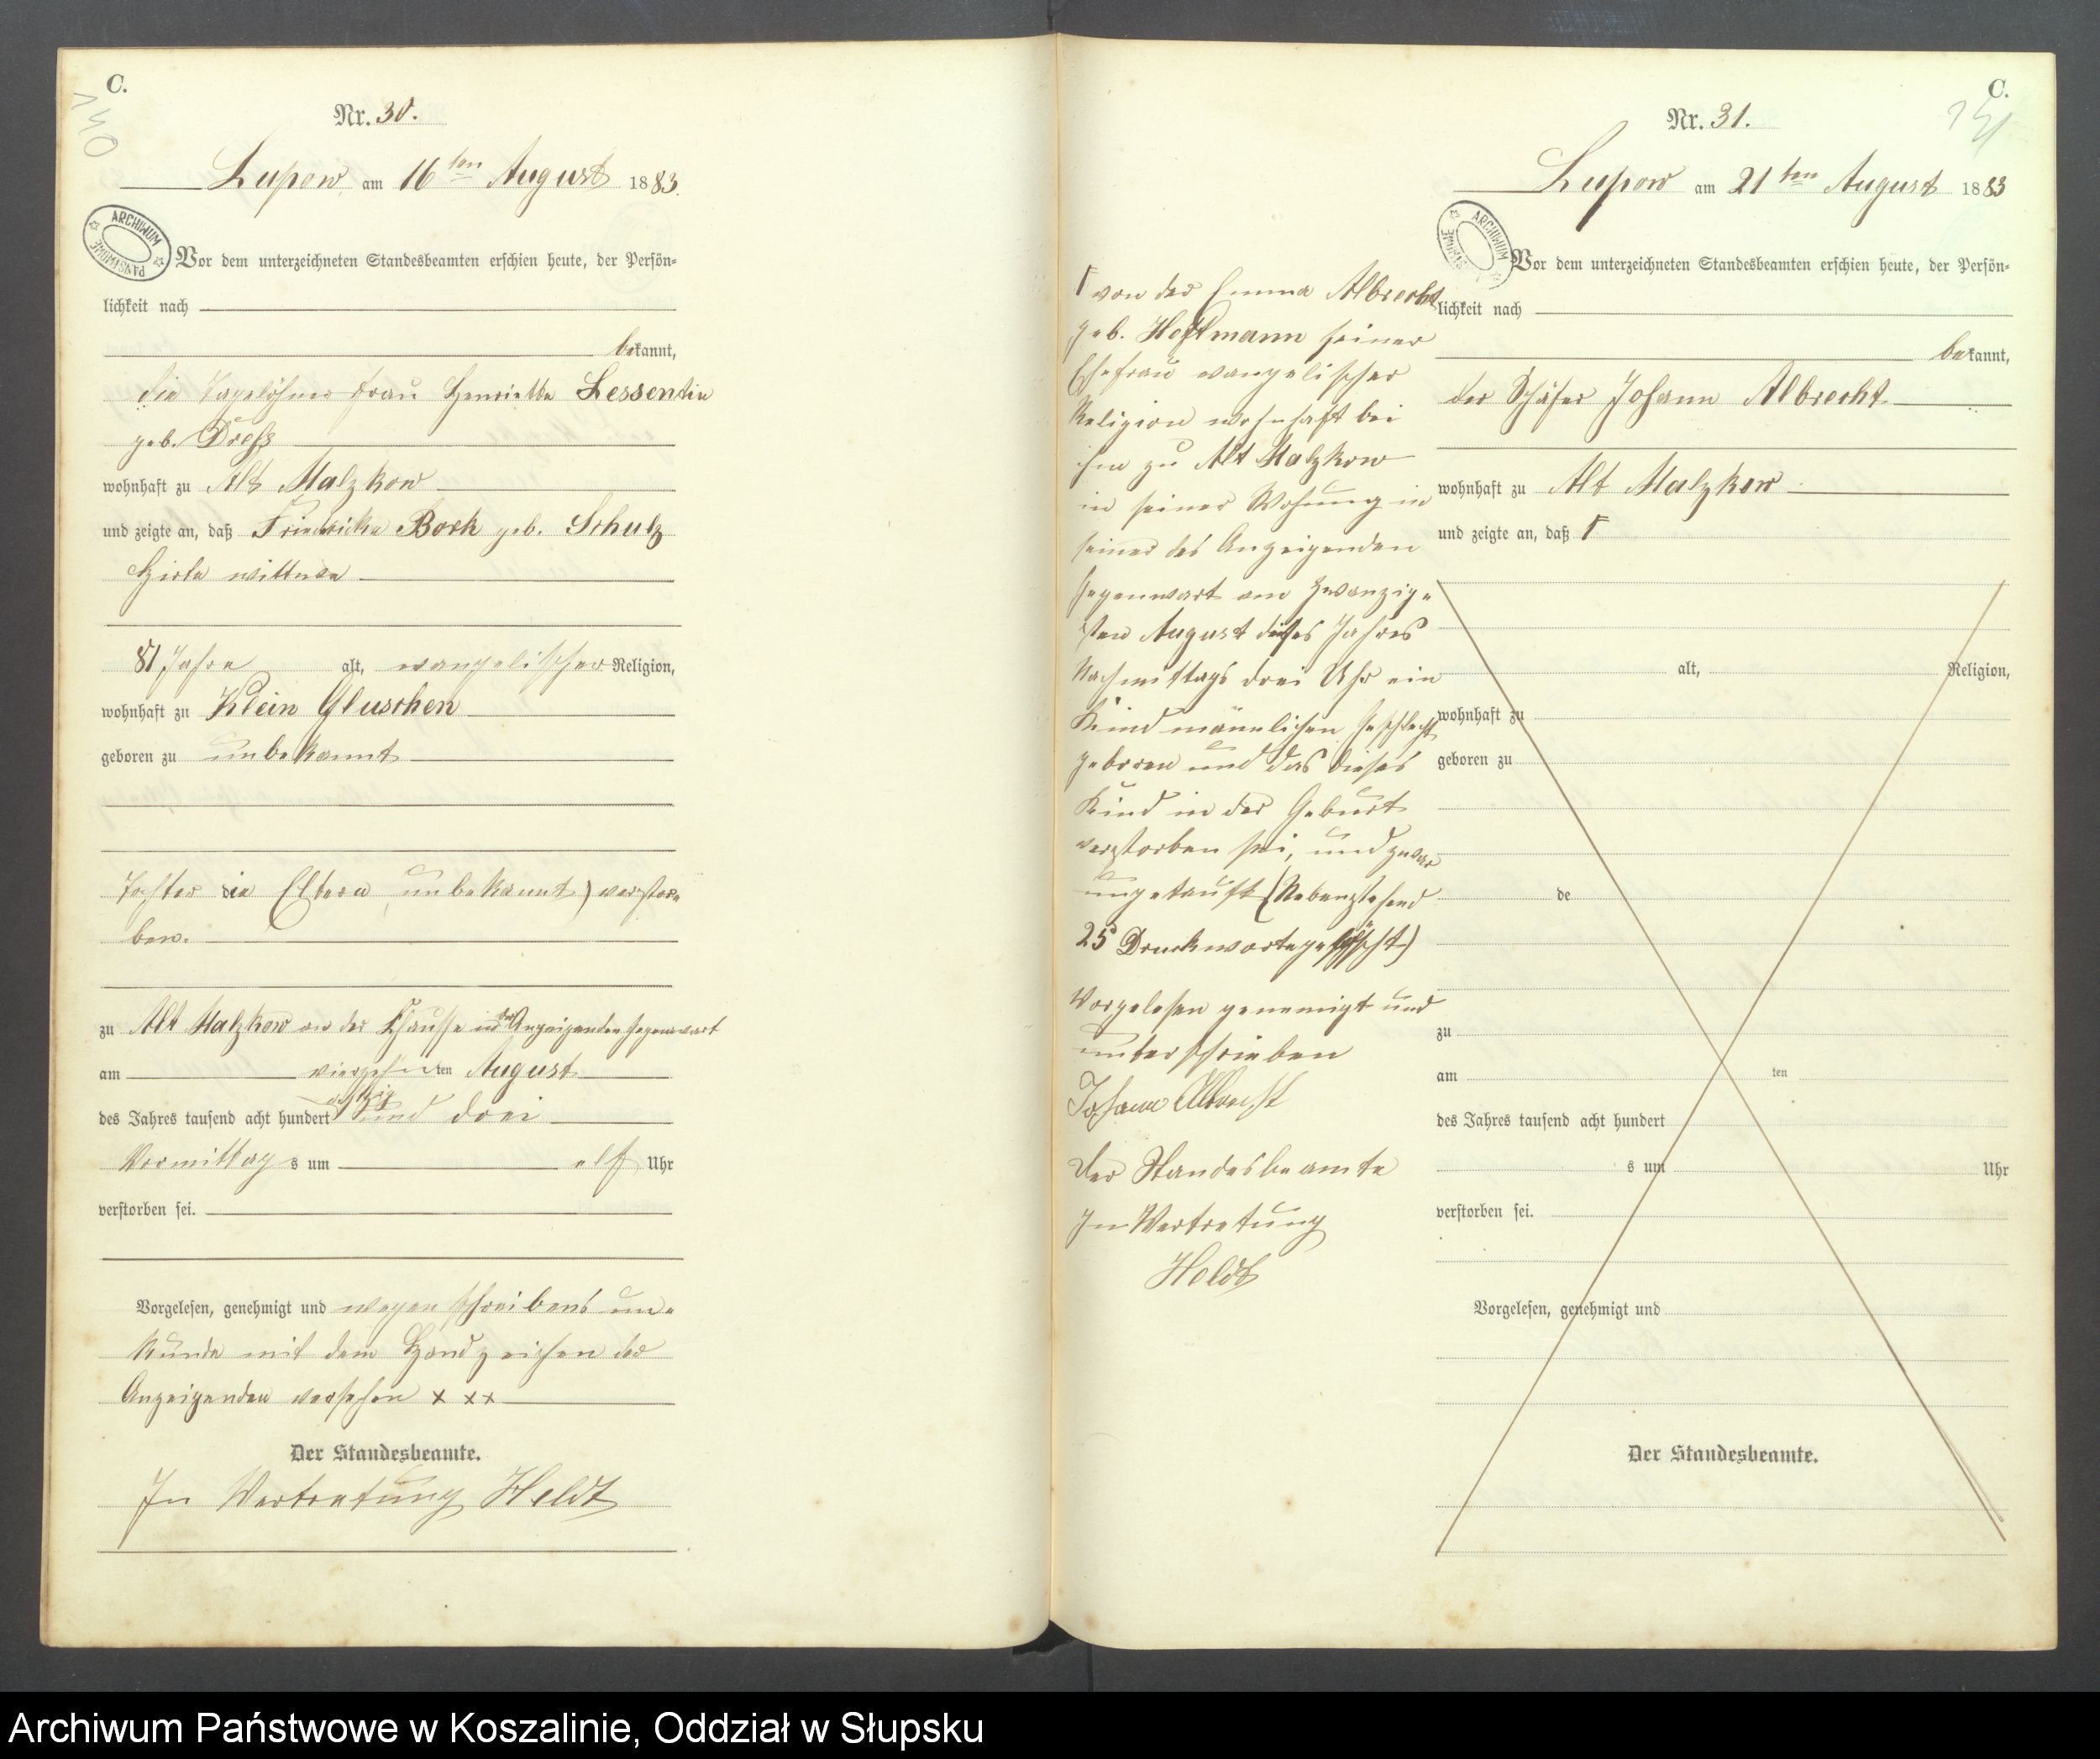 C.
140
Nr. 30.
Lupow am 16ten August 1883.
ARCHIWUM PAŃSTWOWE
Vor dem unterzeichneten Standesbeamten erschien heute, der Persön-
lichkeit nach
bekannt,
die Tagelöhner Frau Henriette Lessentin
geb. Dreß
wohnhaft zu Alt Malzkow
und zeigte an, daß Friedricke Bock geb. Schulz
Hirte wittwe
81 Jahre alt, evangelischer Religion,
wohnhaft zu Klein Gluschen
geboren zu unbekannt
Tochter die Eltern unbekannt) verstor-
ben.
zu Alt Malzkow in der Anzeigenden Gegenwart
am vierzehnten August
des Jahres tausend acht hundert achtzig und drei
Vormittags um elf Uhr
verstorben sei.
Vorgelesen, genehmigt und wegen schreibens un-
kunde mit dem Handzeichen der
Anzeigenden versehen x xx
Der Standesbeamte.
In Vertretung Heldt
C.
Nr. 31.
Lupow am 21ten August 1883
ARCHIWUM
Vor dem unterzeichneten Standesbeamten erschien heute, der Persön-
lichkeit nach
bekannt,
der Schäfer Johann Albrecht
wohnhaft zu Alt Malzkow
und zeigte an, daß Γ
alt, Religion,
wohnhaft zu
geboren zu
de
zu
am ten
des Jahres tausend acht hundert
s um Uhr
verstorben sei.
Vorgelesen, genehmigt und
Der Standesbeamte.
Γ von der Emma Albrecht
geb. Hoffmann seiner
Ehefrau evangelischer
Religion wohnhaft bei
ihm zu Alt Malzkow
in seiner Wohnung in
seiner des Anzeigenden
Gegenwart am zwanzig-
sten August dieses Jahres
Nachmittags drei Uhr ein
Kind männlichen Geschlechts
geboren und das dieses
Kind in der Geburt
verstorben sei, und zwar
ungetauft (Nebenstehend
25 Druckworte gelöscht)
Vorgelesen genemigt und
unterschrieben
Johann Albrecht
Der Standesbeamte
In Vertretung
Heldt
Archiwum Państwowe w Koszalinie, Oddział w Słupsku